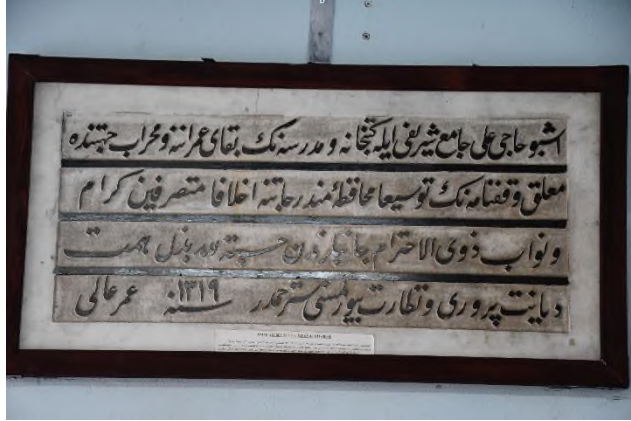 اشبو حاجی علی جامع شریفی ایله کتبخانه و مدرسه نك بقای عمرانته و محراب جهتنده
معلق وقفنامه نك توسیعا محافظۀ مندرجاتنه اخلافا متصرفین کرام
ونواب ذوی الاحترام جانبلرندن حسبة لله بذل همت
دیانت پروری و نظارت بیورلمسی مسترحمدر سنه ١٣١٩ عمر عالی